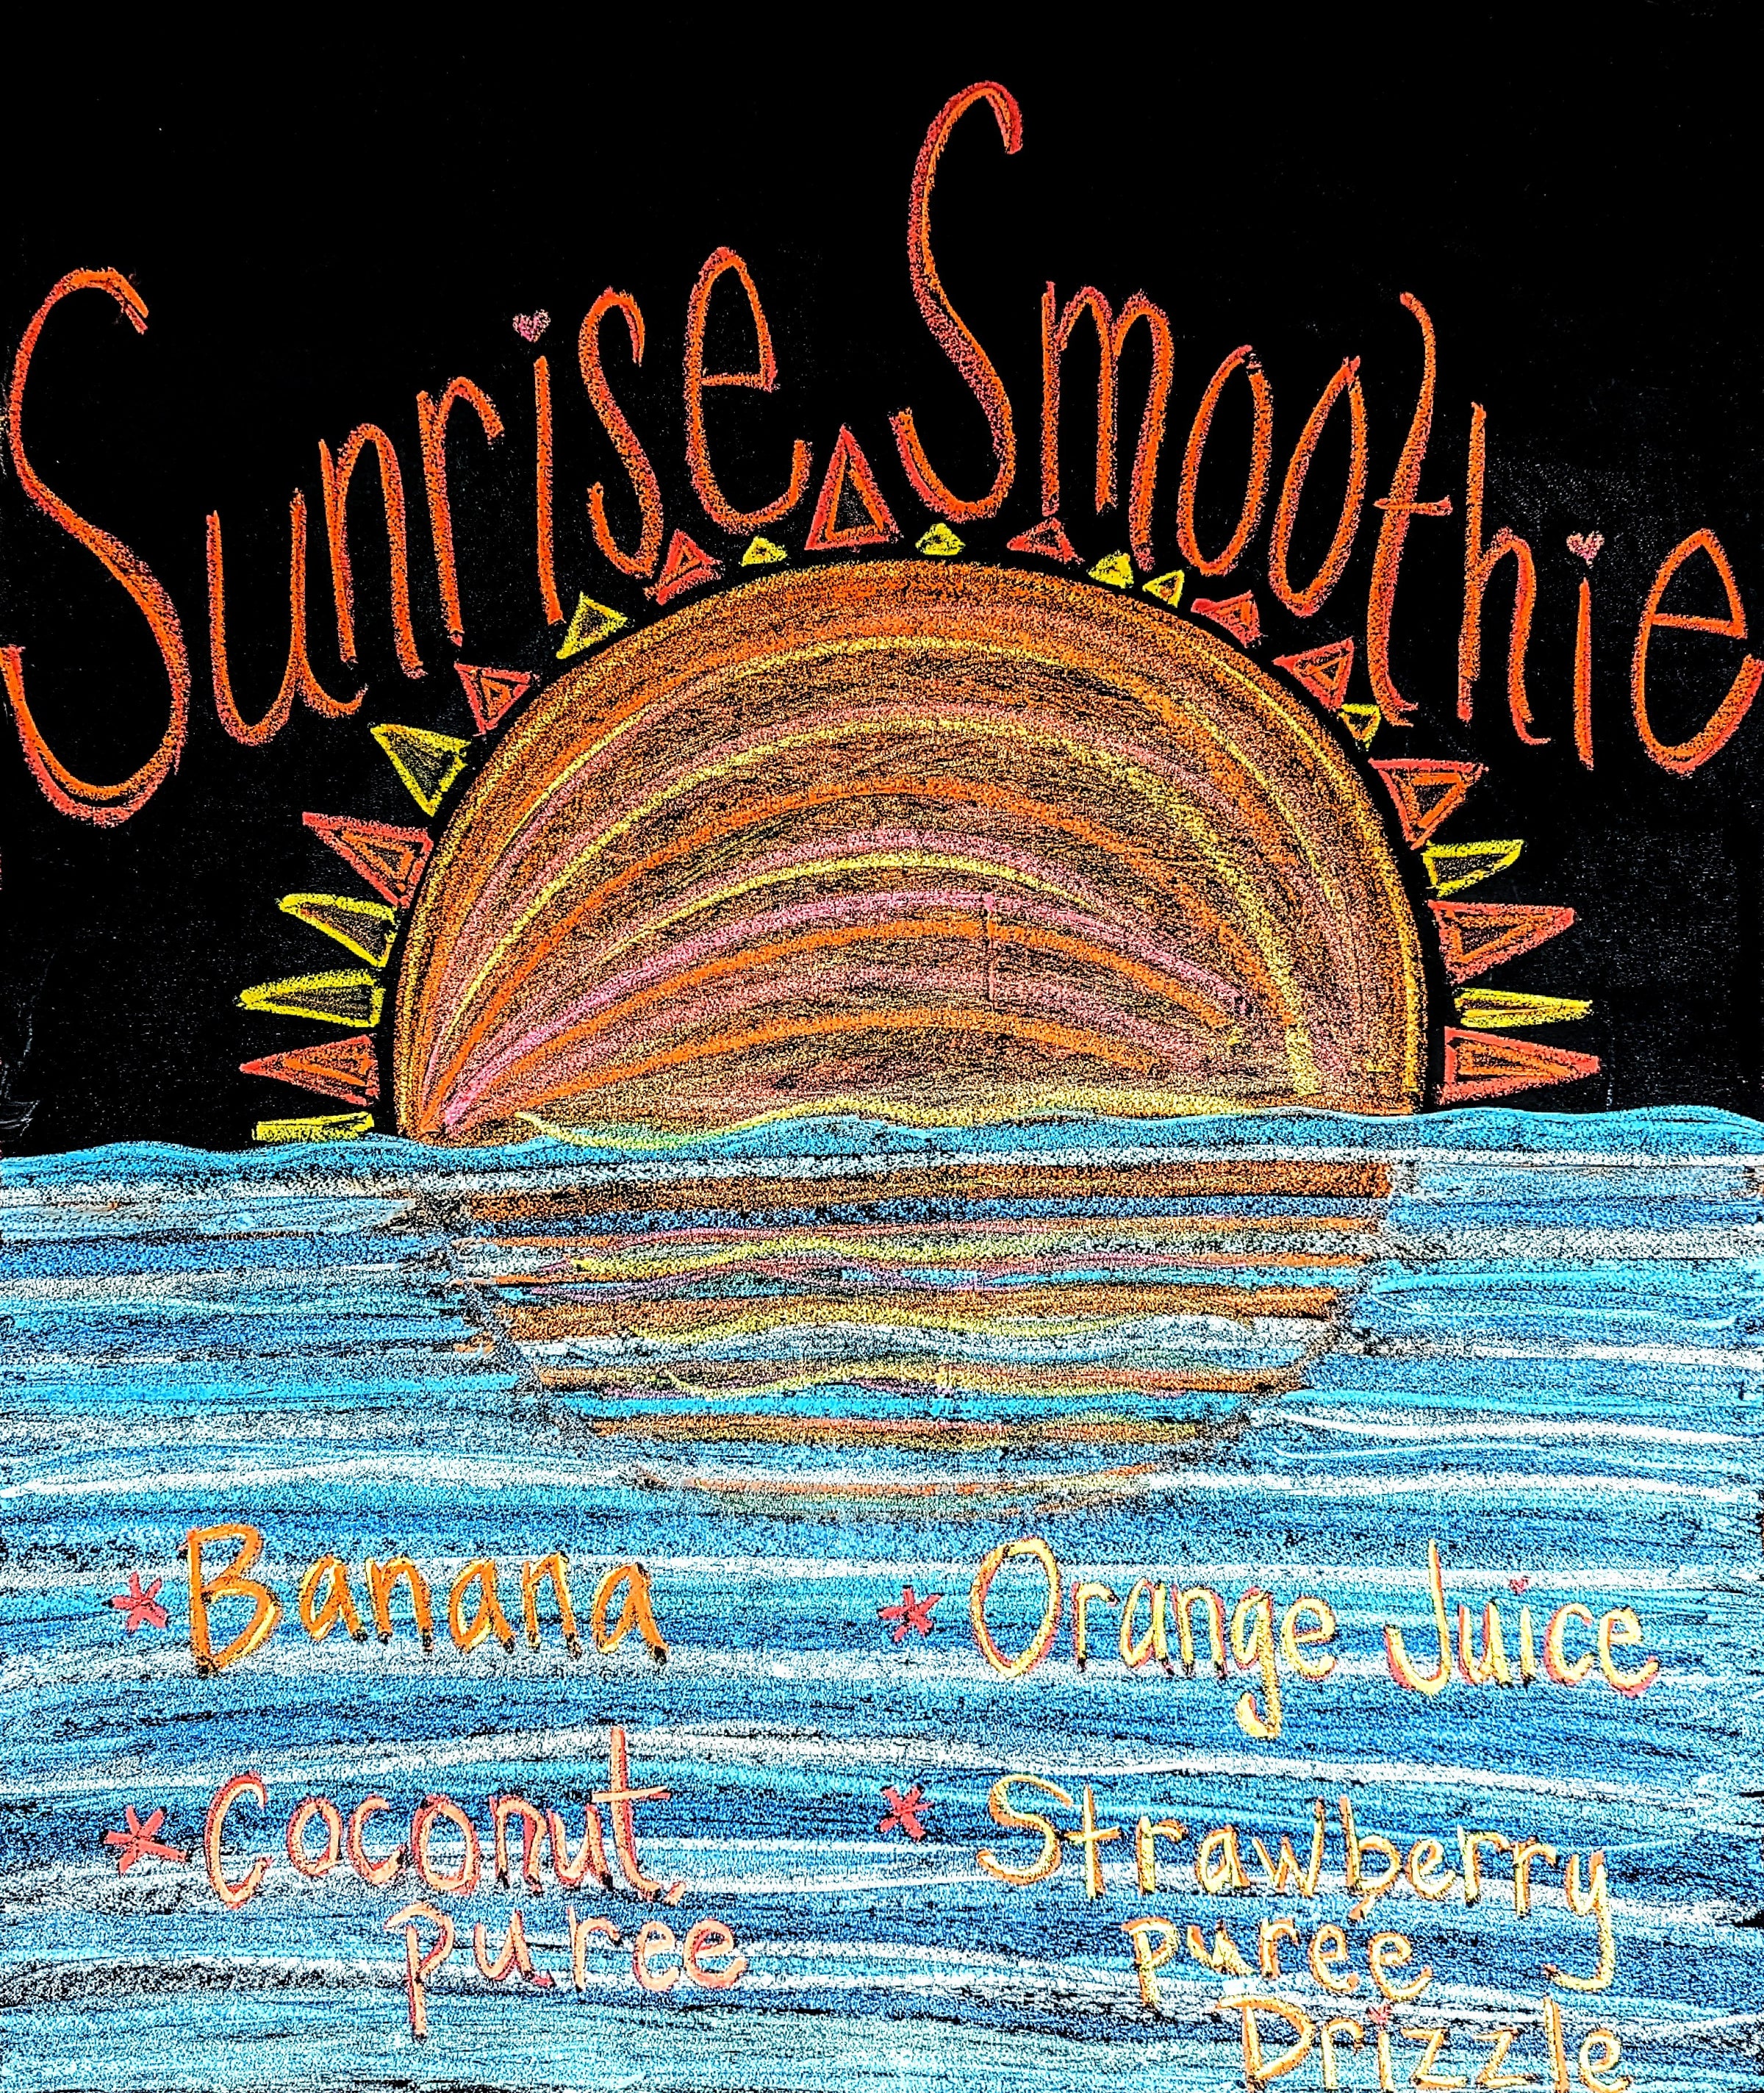 Sunrise Smoothie
* Banana
* Orange Juice
* Coconut
purée
* Strawberry
purée
Drizzle